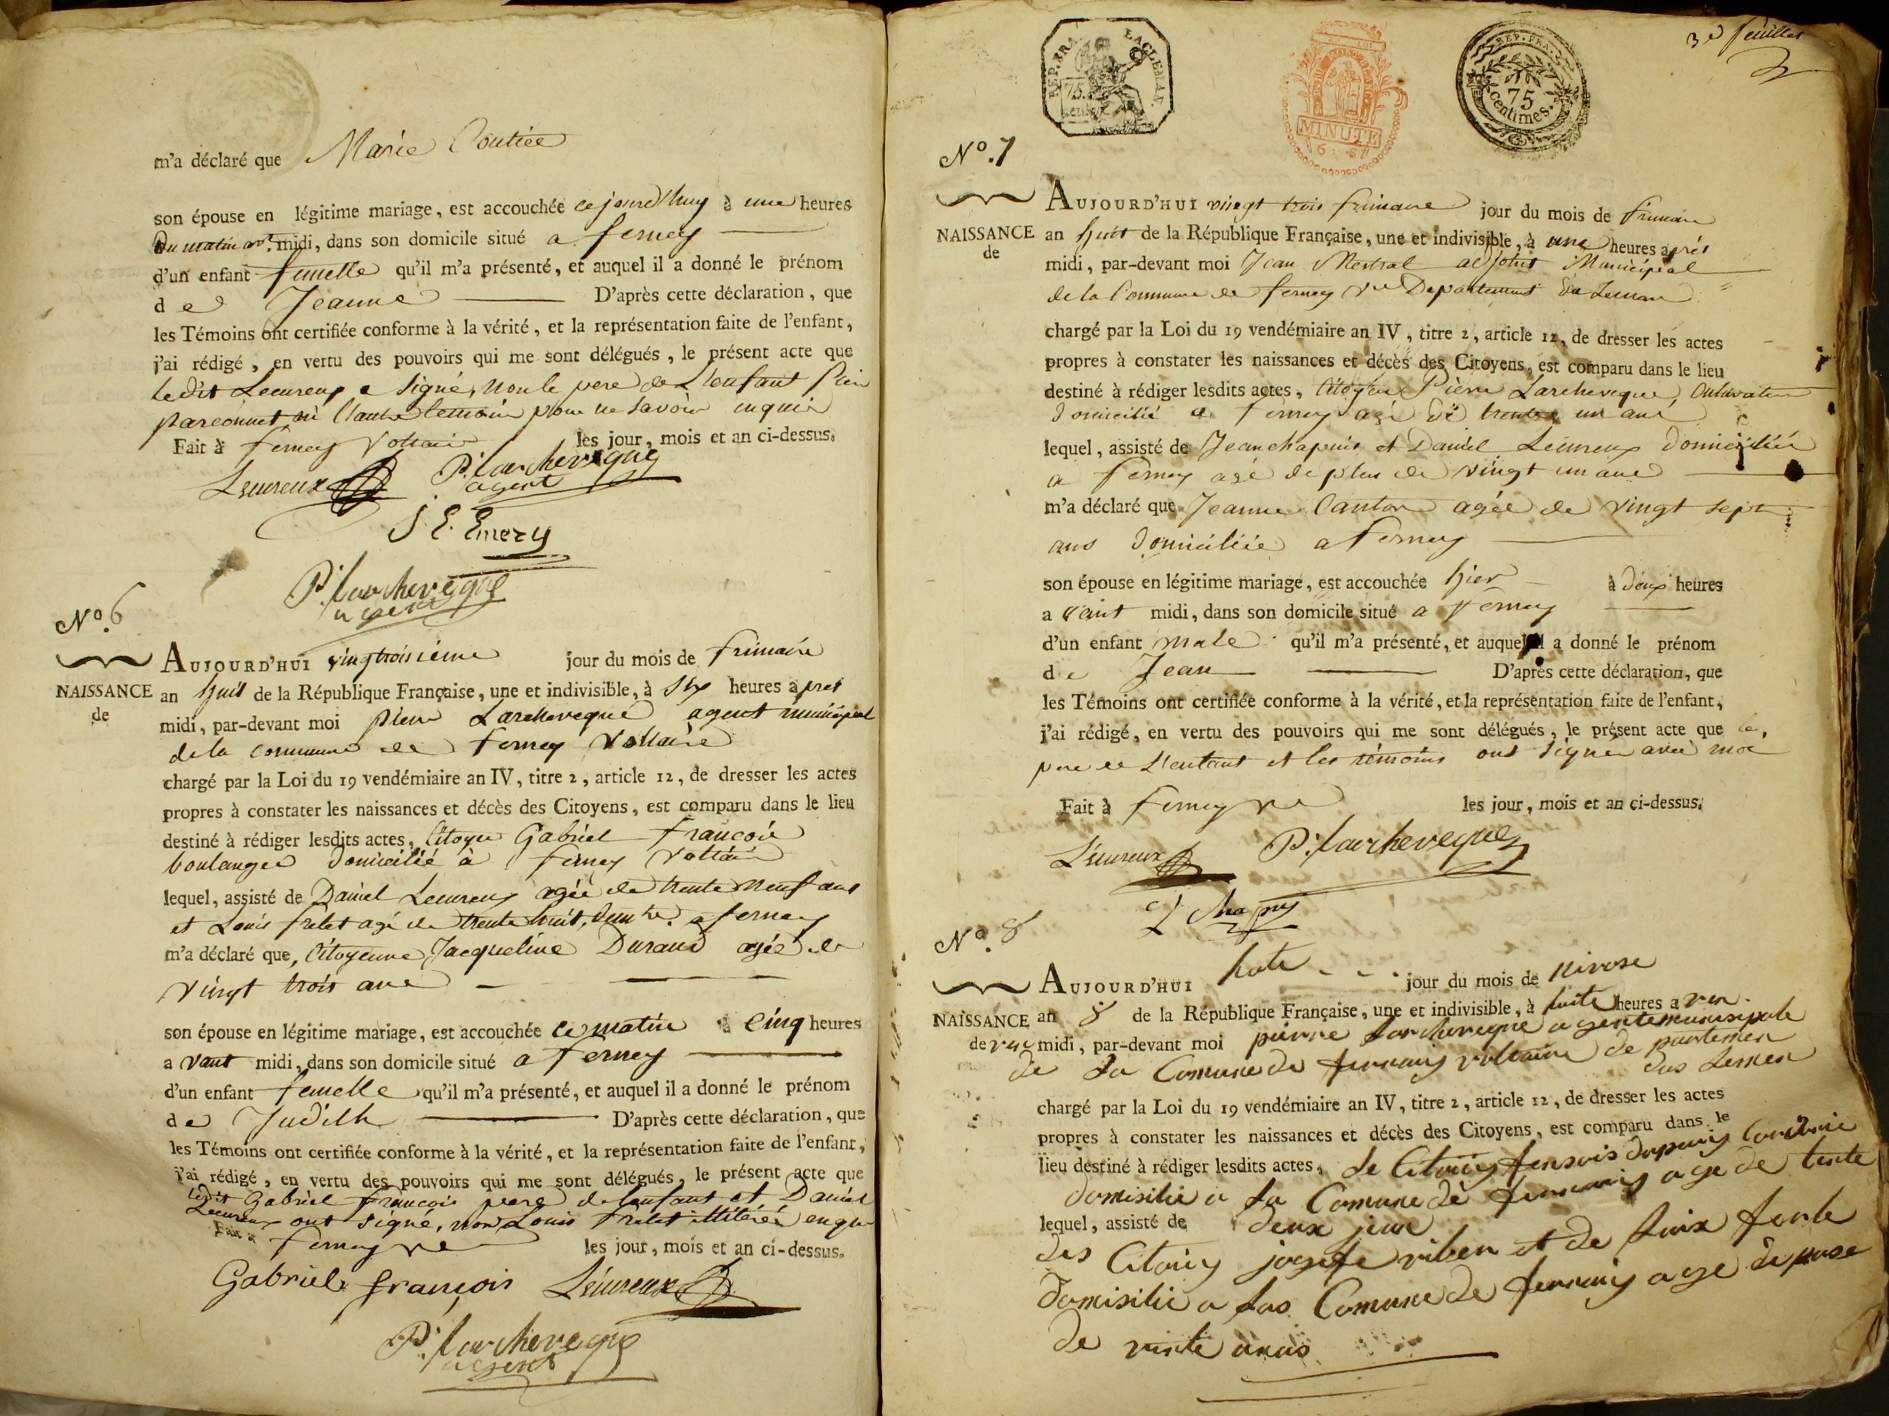 m'a déclaré que Marie Coutiée
son épouse en légitime mariage, est accouchée ce jourd'huy à une heures
du matin avt. midi, dans son domicile situé a ferney
d'un enfant femelle qu'il m'a présenté, et auquel il a donné le prénom
de Jeanne D'après cette déclaration, que
les Témoins ont certifiée conforme à la vérité, et la représentation faite de l'enfant,
j'ai rédigé, en vertu des pouvoirs qui me sont délégués, le présent acte que
ledit Lecureux a signé, non le pere de L'enfant
ni l'autre temoin pour ne savoir enquis
Fait à ferney Voltaire les jour, mois et an ci-dessus.
Lecureux P. Larchevêque
agent
J E Emery
P. Larchevêque
agent
No. 6
AUJOURD'HUI vingtroisieme jour du mois de frimaire
NAISSANCE an huit de la République Française, une et indivisible, à six heures après
de
midi, par-devant moi pierre Larcheveque agent municipal
de la commune de ferney Voltaire
chargé par la Loi du 19 vendémiaire an IV, titre 2, article 12, de dresser les actes
propres à constater les naissances et décès des Citoyens, est comparu dans le lieu
destiné à rédiger lesdits actes, Citoyen Gabriel François
boulanger domicilié à ferney Voltaire
lequel, assisté de Daniel Lecureux agée de trente neuf ans
et Louis frelet agé de trente huit, a ferney
m'a déclaré que, Citoyenne Jacqueline Durand agée de
vingt trois ans
son épouse en légitime mariage, est accouchée ce matin à Cinq heures
a vant midi, dans son domicile situé a ferney
d'un enfant femelle qu'il m'a présenté, et auquel il a donné le prénom
de Judith D'après cette déclaration, que
les Témoins ont certifiée conforme à la vérité, et la représentation faite de l'enfant,
j'ai rédigé, en vertu des pouvoirs qui me sont délégués, le présent acte que
ledit Gabriel François pere de lenfant et Daniel
Lecureux ont signé, non Louis frelet illitéré enquis
Fait à ferney Vre les jour, mois et an ci-dessus.
Gabriel françois Lécureux
P. Larchevêque
agent
REP. FRA. 75. centimes
MINUTE
REP. FRA.
75
centimes.
3e feuillet
No. 7
AUJOURD'HUI vingt trois frimaire jour du mois de frimaire
NAISSANCE an huit de la République Française, une et indivisible, à une heures après
de
midi, par-devant moi Jean Mestral adjoint Municipal
de la Commune de ferney Vre Departement du Leman
chargé par la Loi du 19 vendémiaire an IV, titre 2, article 12, de dresser les actes
propres à constater les naissances et décès des Citoyens, est comparu dans le lieu
destiné à rédiger lesdits actes, Citoyen Pierre Larcheveque Cultivateur
domicilié a ferney agé de trente un ans
lequel, assisté de Jean chapuis et Daniel Lécureux domiciliés
a ferney agé de plus de vingt un ans
m'a déclaré que Jeanne Canton agée de vingt sept
ans domiciliée a ferney
son épouse en légitime mariage, est accouchée hier à deux heures
a vant midi, dans son domicile situé a ferney
d'un enfant male qu'il m'a présenté, et auquel il a donné le prénom
de Jean D'après cette déclaration, que
les Témoins ont certifiée conforme à la vérité, et la représentation faite de l'enfant,
j'ai rédigé, en vertu des pouvoirs qui me sont délégués, le présent acte que le
pere de L'enfant et les témoins ont signer avec moi
Fait à ferney Vre les jour, mois et an ci-dessus.
Lécureux P. Larchevêque
J Chapuy
No. 8
AUJOURD'HUI huite jour du mois de nivose
NAISSANCE an 8 de la République Française, une et indivisible, à huite heures a ven
de ven midi, par-devant moi pierre Larcheveque agente munisipale
de La Comune de fernaiy voltaire de partemen
dus Lemen
chargé par la Loi du 19 vendémiaire an IV, titre 2, article 12, de dresser les actes
propres à constater les naissances et décès des Citoyens, est comparu dans le
lieu destiné à rédiger lesdits actes, Le Citoiey fransois Dupuis
domisilie a La Comune de fernaiy age de tente
lequel, assisté de deux
des Citoiey josefe riben et de
domisilie a Las Comune de fernaiy age de
de vinte anas